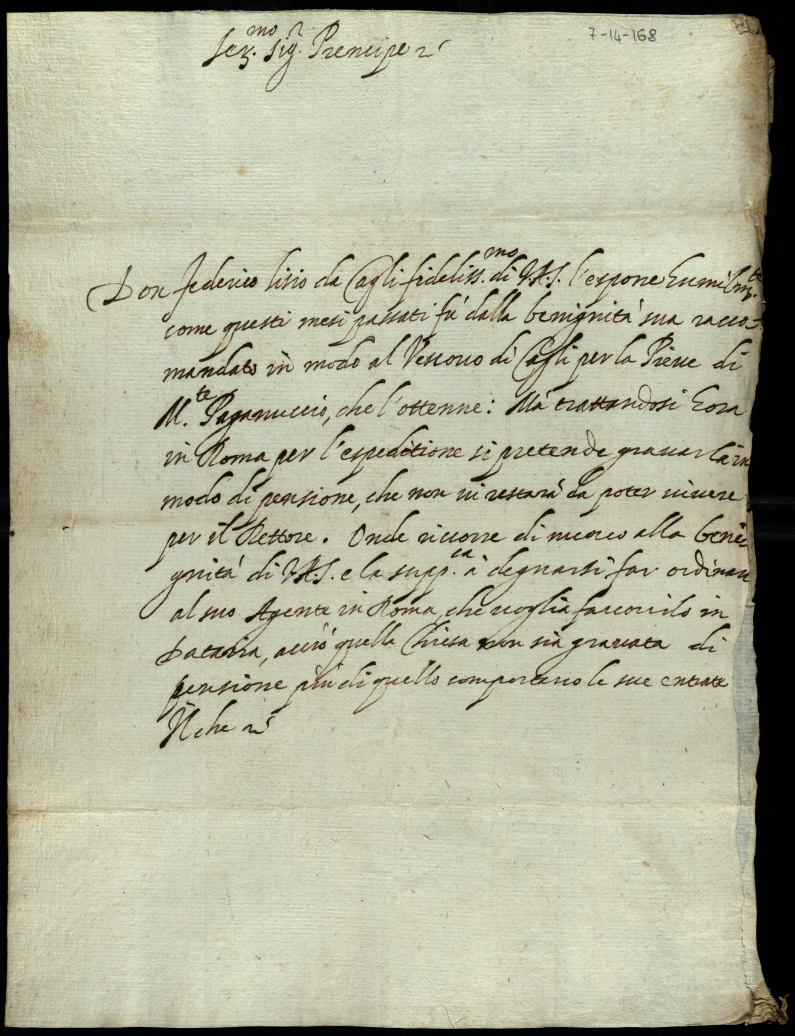 7-14-168
Ser.mo Sig.r Prencipe
Don Federico lisio da Cagli fideliss.mo di V.A.S. l'espone humilm.te
come questi mesi passati fù dalla benignità sua racco=
mandato in modo al Vescovo di Cagli per la Pieve di
M.te Paganuccio, che l'ottenne: Mà trattandosi hora
in Roma per l'espeditione si pretende gravarla in
modo di pensione, che non vi restarà da poter vivere
per il Rettore. Onde ricorre di nuovo alla beni=
gnità di V.A.S. e la supp.ca à degnarsi far ordinare
al suo Agente in Roma, che voglia favorirlo in
Dataria, acciò quella Chiesa non sia gravata di
pensione più di quello comportano le sue entrate
Il che